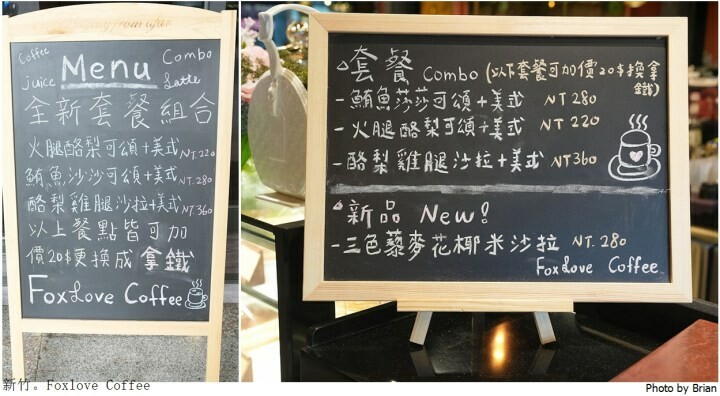 Coffee
Combo
juice
Menu
Latte
全新套餐組合
火腿酪梨可頌+美式 NT.220
鮪魚沙沙可頌+美式 NT.280
酪梨雞腿沙拉+美式 NT.360
以上餐點皆可加
價20$更換成拿鐵
FoxLove Coffee
新竹。Foxlove Coffee
套餐 Combo (以下套餐可加價20$換拿鐵)
-鮪魚莎莎可頌+美式 NT 280
-火腿酪梨可頌+美式 NT 220
-酪梨雞腿沙拉+美式 NT 360
新品 New!
-三色藜麥花椰米沙拉 NT. 280
FoxLove Coffee
Photo by Brian